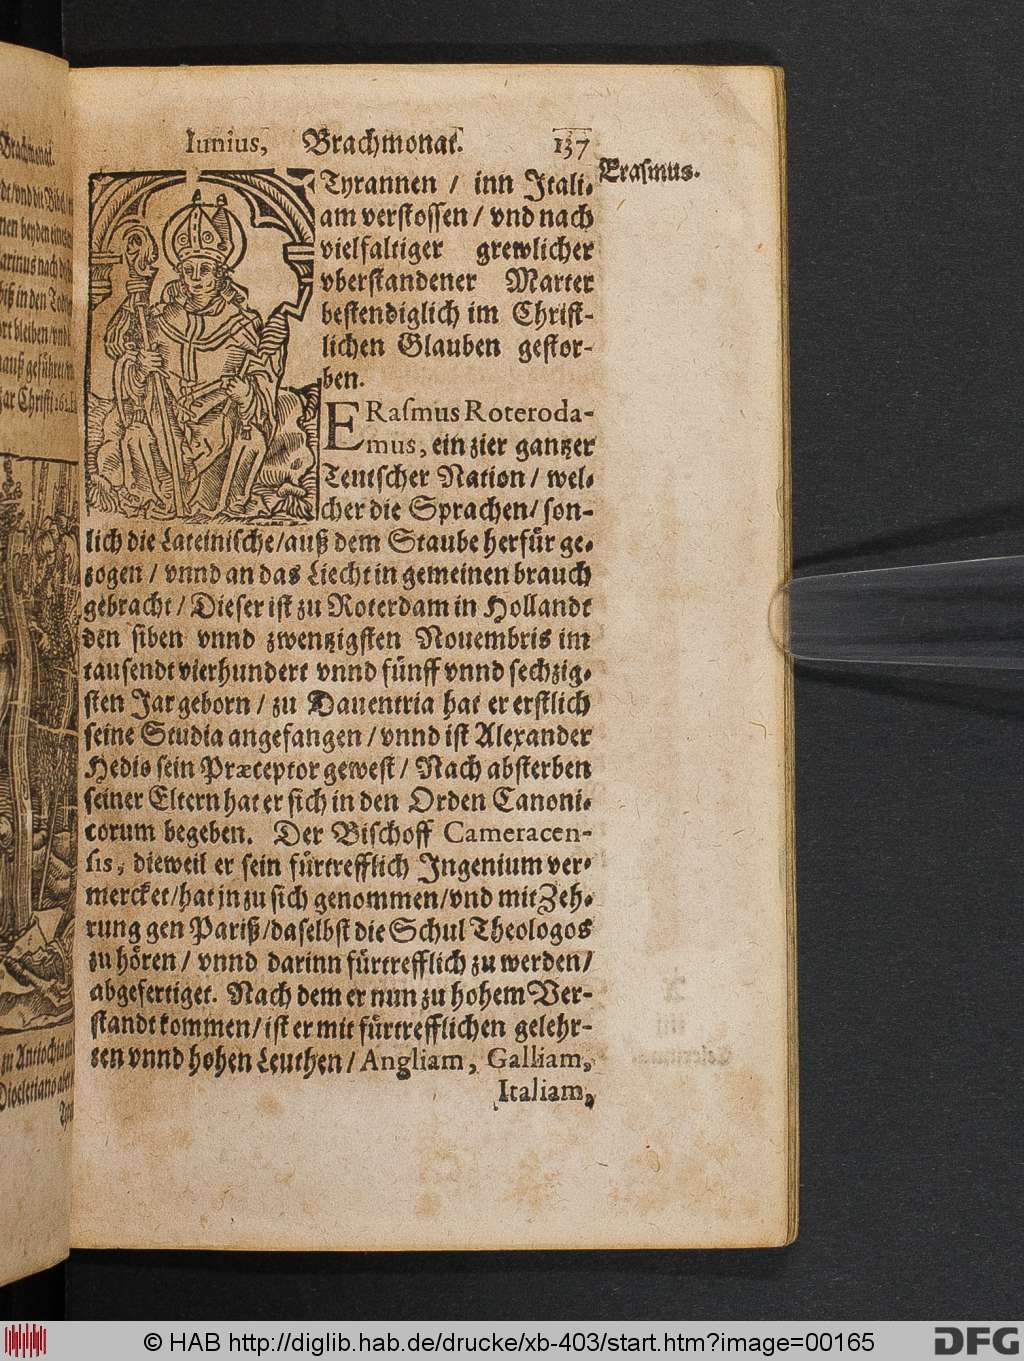 Iunius, Brachmonat. 137
Erasmus.
Tyrannen / inn Itali-
am verstossen / vnd nach
vielfaltiger grewlicher
vberstandener Marter
bestendiglich im Christ-
lichen Glauben gestor-
ben.
ERasmus Roteroda-
mus, ein zier gantzer
Teutscher Nation / wel-
cher die Sprachen / son-
lich die Lateinische / auß dem Staube herfür ge-
zogen / vnnd an das Liecht in gemeinen brauch
gebracht / Dieser ist zu Roterdam in Hollandt
den siben vnnd zwentzigsten Nouembris im
tausendt vierhundert vnnd fünff vnnd sechzig-
sten Jar geborn / zu Dauentria hat er erstlich
seine Studia angefangen / vnnd ist Alexander
Hedio sein Præceptor gewest / Nach absterben
seiner Eltern hat er sich in den Orden Canoni-
corum begeben. Der Bischoff Cameracen-
sis, dieweil er sein fürtrefflich Ingenium ver-
mercket / hat jn zu sich genommen / vnd mit Zeh-
rung gen Pariß / daselbst die Schul Theologos
zu hören / vnnd darinn fürtrefflich zu werden /
abgefertiget. Nach dem er nun zu hohem Ver-
standt kommen / ist er mit fürtrefflichen gelehr-
ten vnnd hohen Leuthen / Angliam, Galliam,
Italiam,
Brachmonat.
zu Antiochia
Diocletiano
© HAB http://diglib.hab.de/drucke/xb-403/start.htm?image=00165
DFG